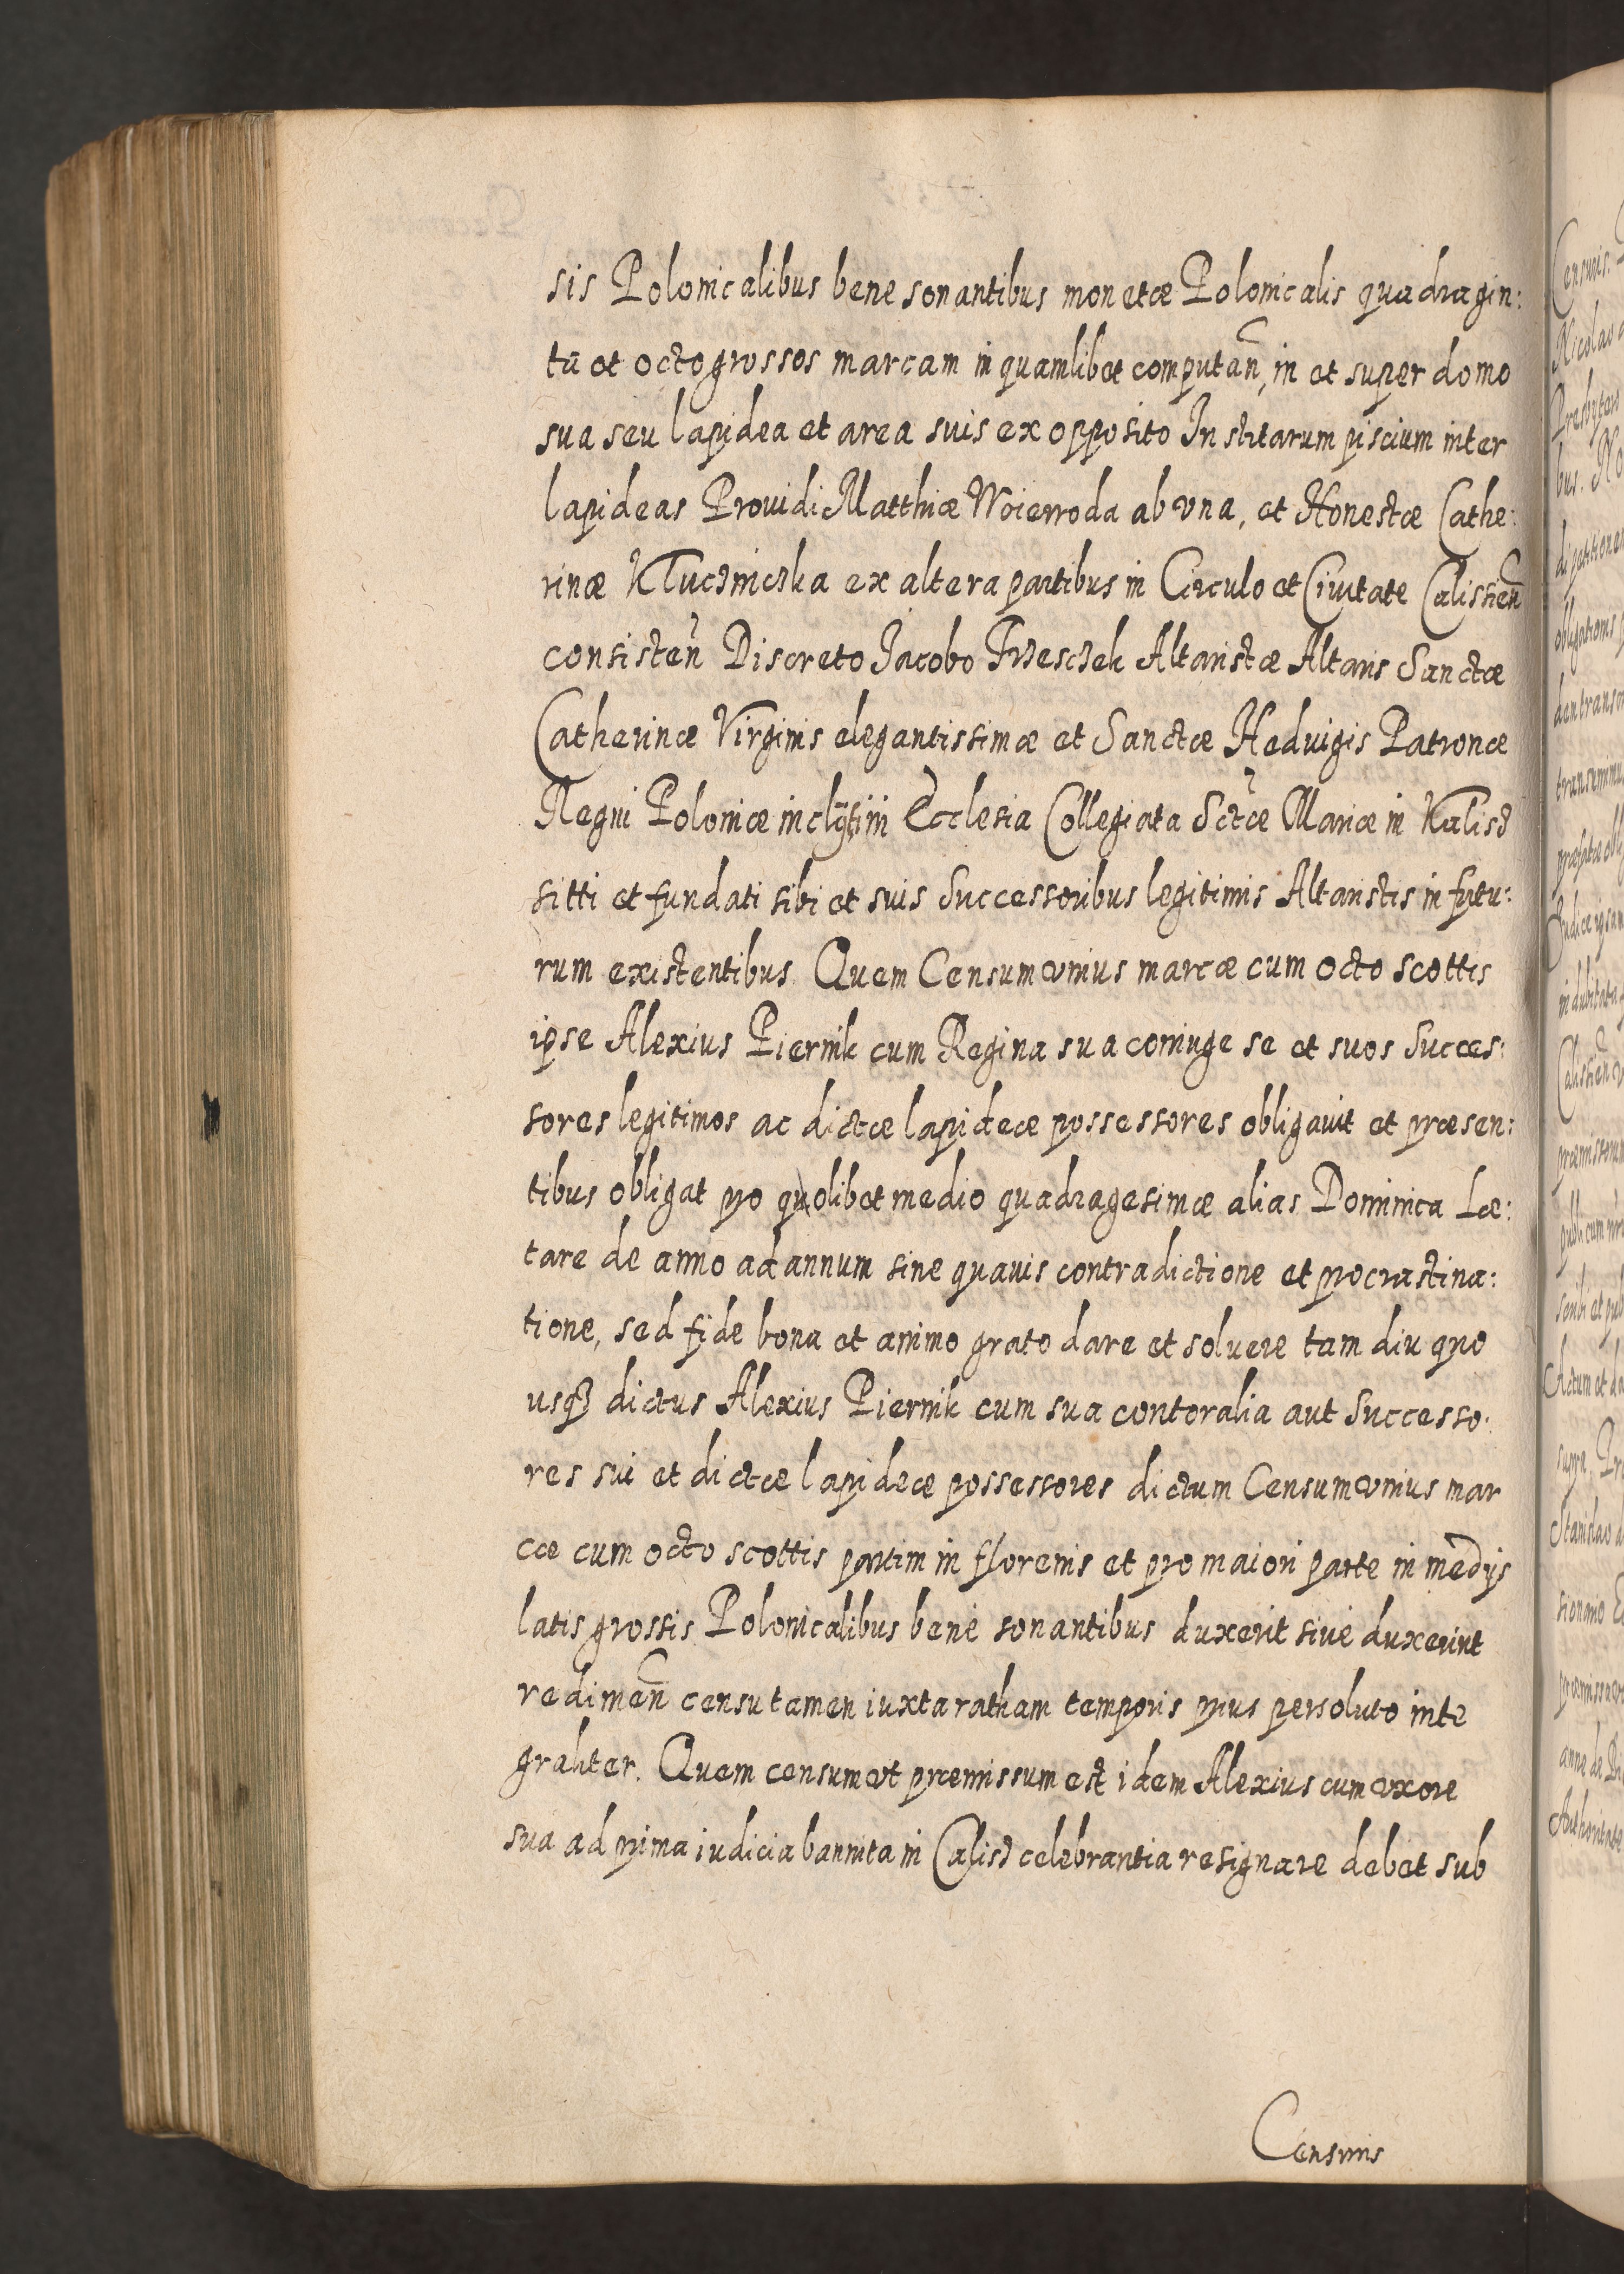 sis Polonicalibus bene sonantibus monetæ Polonicalis quadragin:
ta et octo grossos marcam in quamlibet computan̄, in et super domo
sua seu lapidea et area suis ex opposito Institarum piscium inter
lapideas Prouidi Matthiæ Woiewoda ab vna, et Honestæ Cathe:
rinæ Kluczniczka ex altera partibus in Circulo et Ciuitate Calissien̄
consisten̄ Discreto Jacobo Trzesczek Altaristæ Altaris Sanctæ
Catherinæ Virginis elegantissimæ et Sanctæ Heduigis Patronæ
Regni Poloniæ inclyti in Ecclesia Collegiata Sctæ Mariæ in Kalisz
sitti et fundati sibi et suis Successoribus legitimis Altaristis in futu:
rum existentibus Quem Censum vnius marcæ cum octo scottis
ipse Alexius Piernik cum Regina sua coniuge se et suos Succes:
sores legitimos ac dictæ lapideæ possessores obligauit et præsen:
tibus obligat pro quolibet medio quadragesimæ alias Dominica Læ:
tare de anno ad annum sine quauis contradictione et procrastina:
tione, sed fide bona et animo grato dare et soluere tam diu quo
usqȝ dictus Alexius Piernik cum sua contoralia aut Successo:
res sui et dictæ lapideæ possessores dictum Censum vnius mar
cæ cum octo scottis partim in florenis et pro maiori parte in medijs
latis grossis Polonicalibus bene sonantibus duxerit siue duxerint
redimen̄ censu tamen iuxta ratham temporis prius persoluto inte
graliter. Quem censum vt præmissum est idem Alexius cum vxore
sua ad prima iudicia bannita in Calisz celebrantia resignare debet sub
Censuris